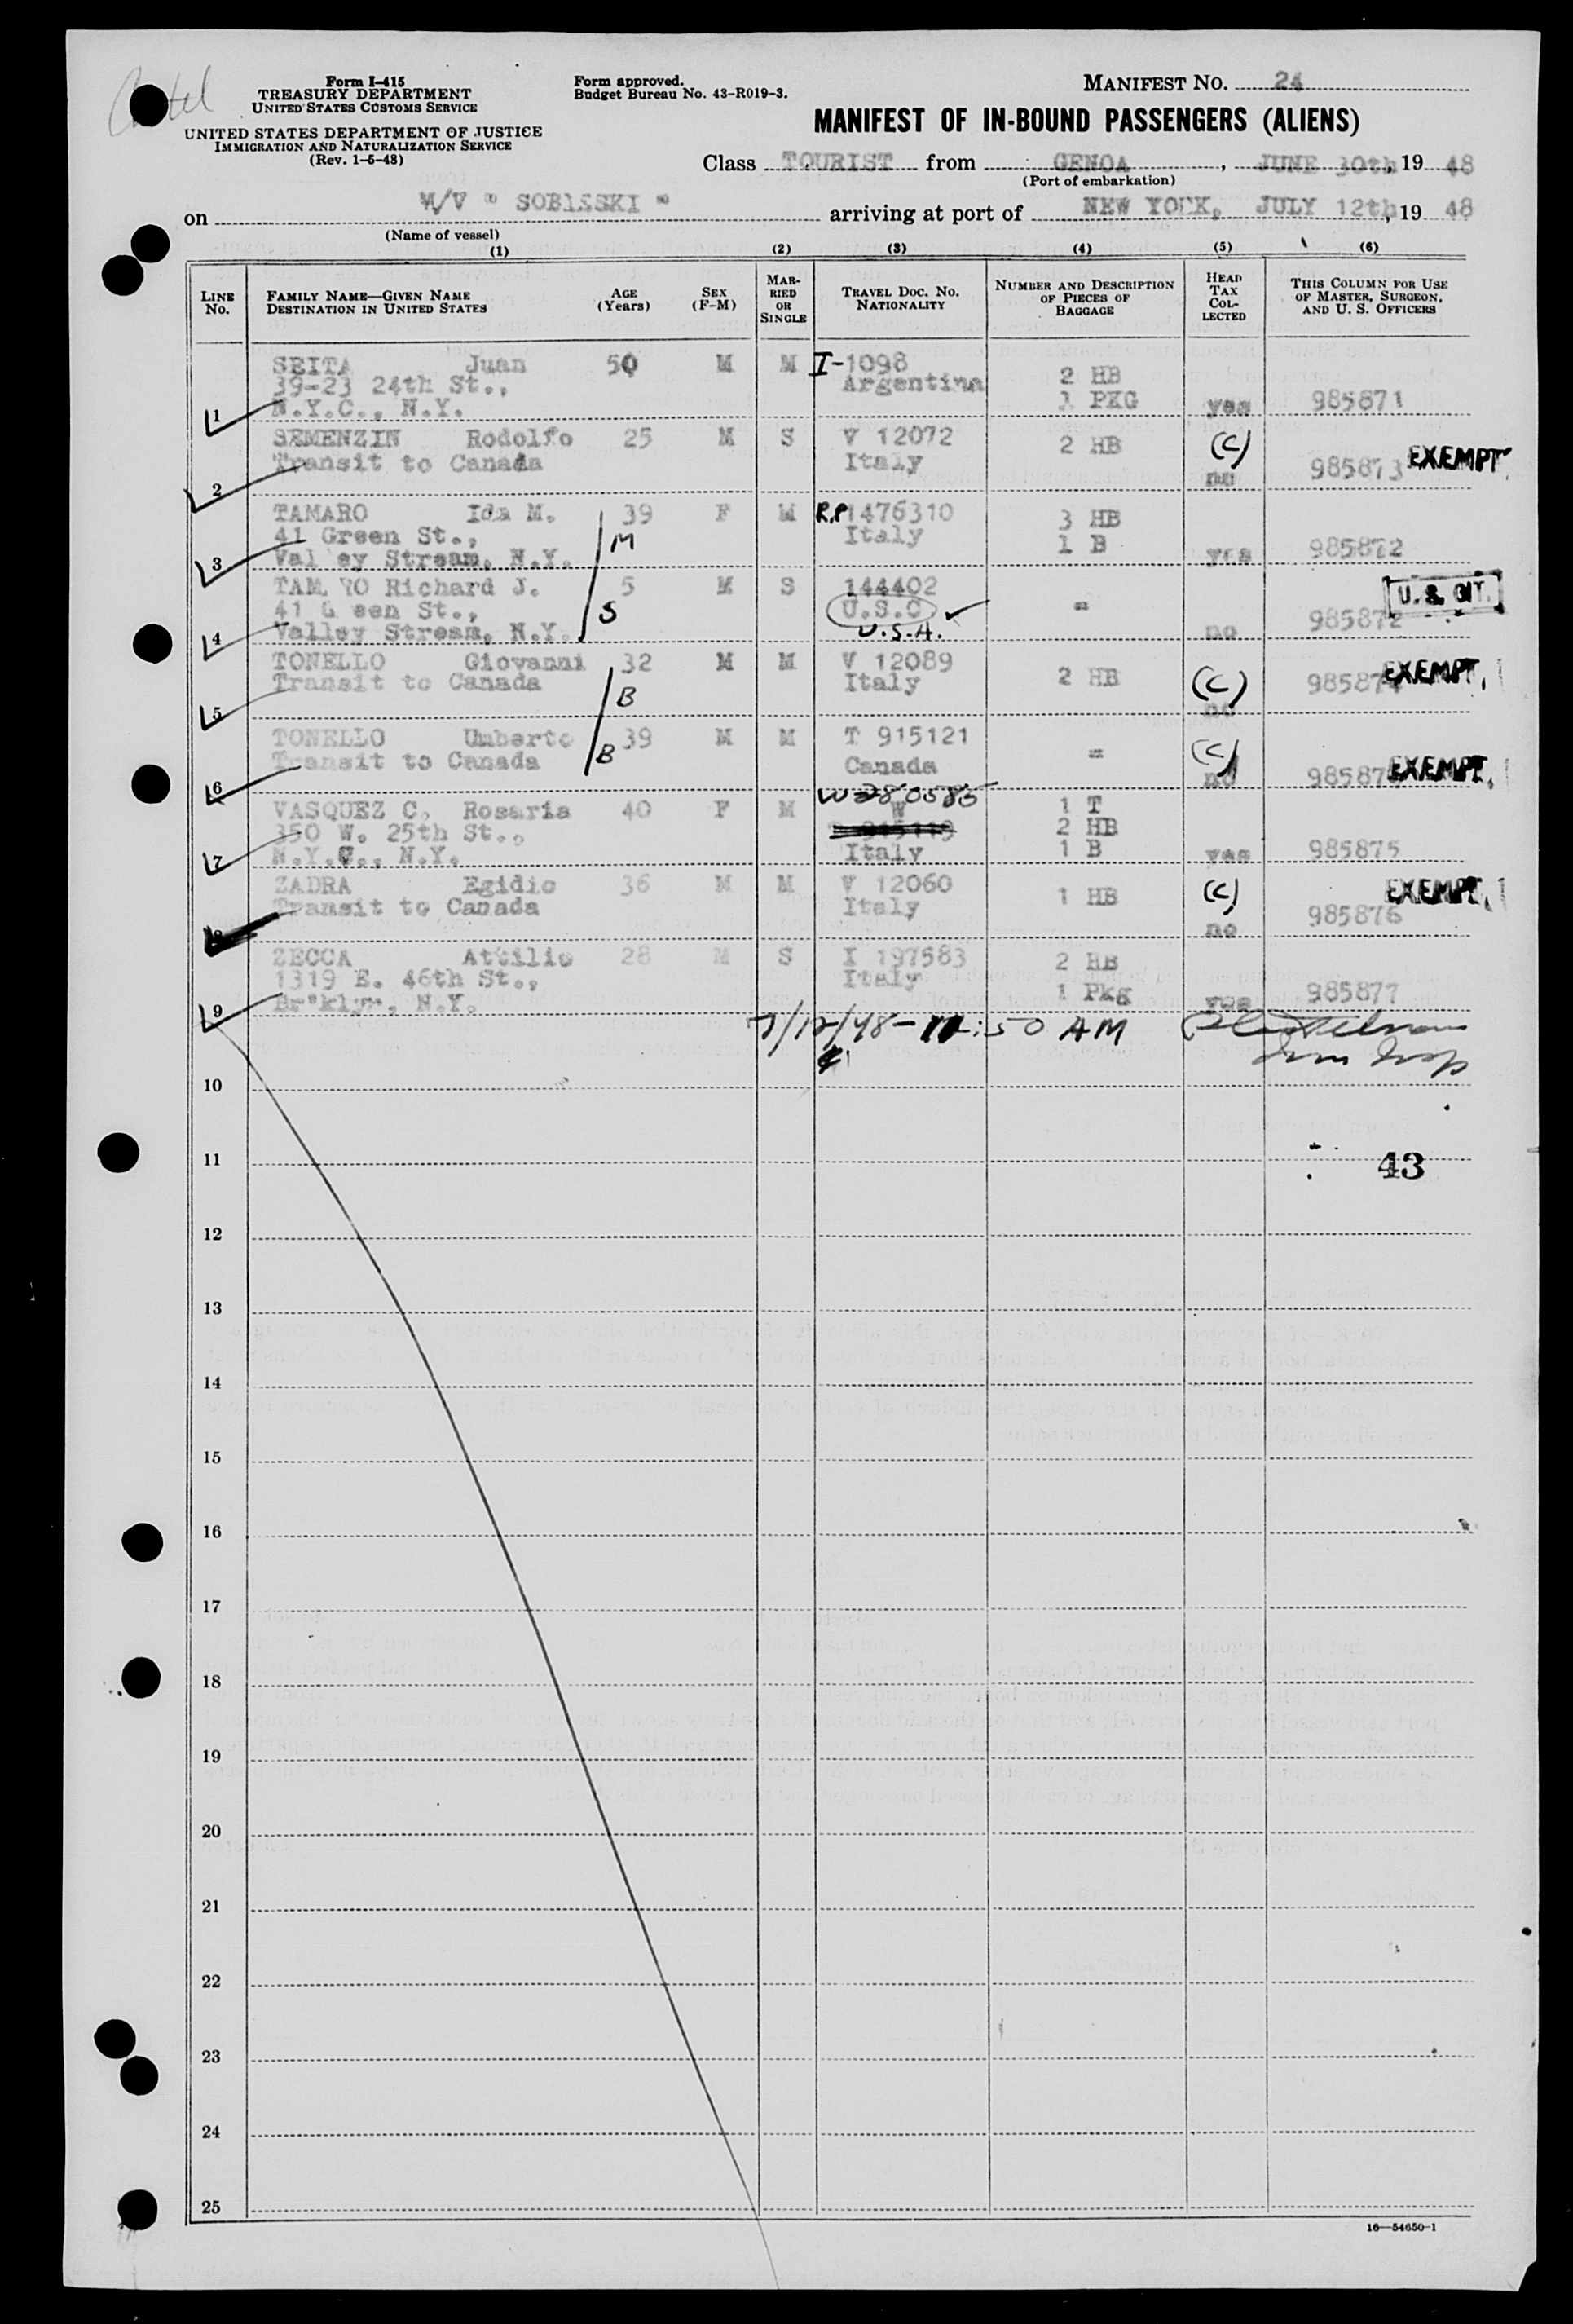 Form I-415
TREASURY DEPARTMENT
UNITED STATES CUSTOMS SERVICE
UNITED STATES DEPARTMENT OF JUSTICE
IMMIGRATION AND NATURALIZATION SERVICE
(Rev. 1-5-48)
Form approved.
Budget Bureau No. 43-R019-3.
MANIFEST NO. 24
MANIFEST OF IN-BOUND PASSENGERS (ALIENS)
Class TOURIST from GENOA, JUNE 30th, 1948
(Port of embarkation)
on M/V " SOBIESKI " arriving at port of NEW YORK, JULY 12th, 1948
(Name of vessel)
(1) (2) (3) (4) (5) (6)
LINE NO.
FAMILY NAME—GIVEN NAME
DESTINATION IN UNITED STATES
AGE (Years)
SEX (F-M)
MARRIED OR SINGLE
TRAVEL DOC. NO. NATIONALITY
NUMBER AND DESCRIPTION OF PIECES OF BAGGAGE
HEAD TAX COLLECTED
THIS COLUMN FOR USE OF MASTER, SURGEON, AND U. S. OFFICERS
SEITA Juan 50 M M I-1098
39-23 24th St., Argentina 2 HB
1 N.Y.C., N.Y. 1 PKG yes 985871
SEMENZIN Rodolfo 25 M S V 12072 2 HB (C)
Transit to Canada Italy
2 no 985873 EXEMPT
TAMARO Ida M. 39 F M R.P. 1476310 3 HB
41 Green St., M Italy 1 B
3 Valley Stream, N.Y. yes 985872
TAM RO Richard J. 5 M S 144402 U. S. CIT.
41 G een St., S U.S.C -
4 Valley Stream, N.Y. U.S.A. no 985872
TONELLO Giovanni 32 M M V 12089 2 HB (C)
Transit to Canada B Italy
5 no 985874 EXEMPT,
TONELLO Umberto 39 M M T 915121 = (C)
Transit to Canada B Canada
6 no EXEMPT,
VASQUEZ C. Rosaria 40 F M W280585 1 T
350 W. 25th St., W 2 HB
7 N.Y.C., N.Y. Italy 1 B yes 985875
ZADRA Egidio 36 M M V 12060 1 HB (C) EXEMPT,
Transit to Canada Italy
8 no 985876
ZECCA Attilio 28 M S I 197583 2 HB
1319 E. 46th St., Italy
9 Br"klyn, N.Y. 1 Pkg yes 985877
7/12/48 :50 AM
10
11
43
12
13
14
15
16
17
18
19
20
21
22
23
24
25
16—54650-1